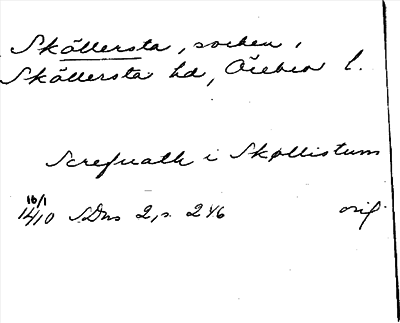 Sköllersta, socken,
Sköllersta hd, Örebro l.
Screfnath i Skøllistum
16/1
14/10 SDns 2, s. 246 orig.